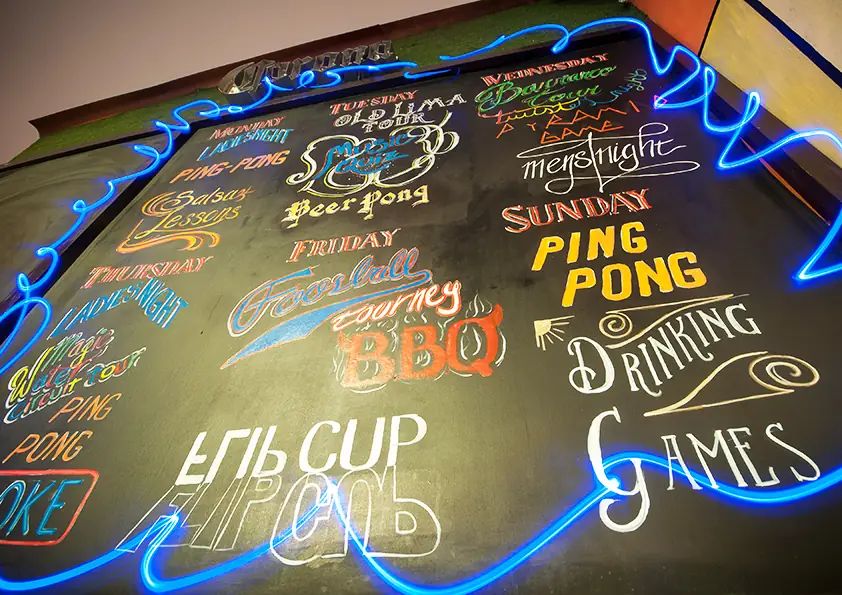 Corona
MONDAY
LADIES NIGHT
PING-PONG
Salsa
Lessons
TUESDAY
OLD LIMA
TOUR
Music
Beer Pong
WEDNESDAY
Barranco
Tour
GAME
men's night
THURSDAY
LADIES NIGHT
Magic
Water
Circuit Tour
PING
PONG
OKE
FRIDAY
Foosball
tourney
BBQ
FLIP CUP
FLIP CUP
SUNDAY
PING
PONG
DRINKING
GAMES